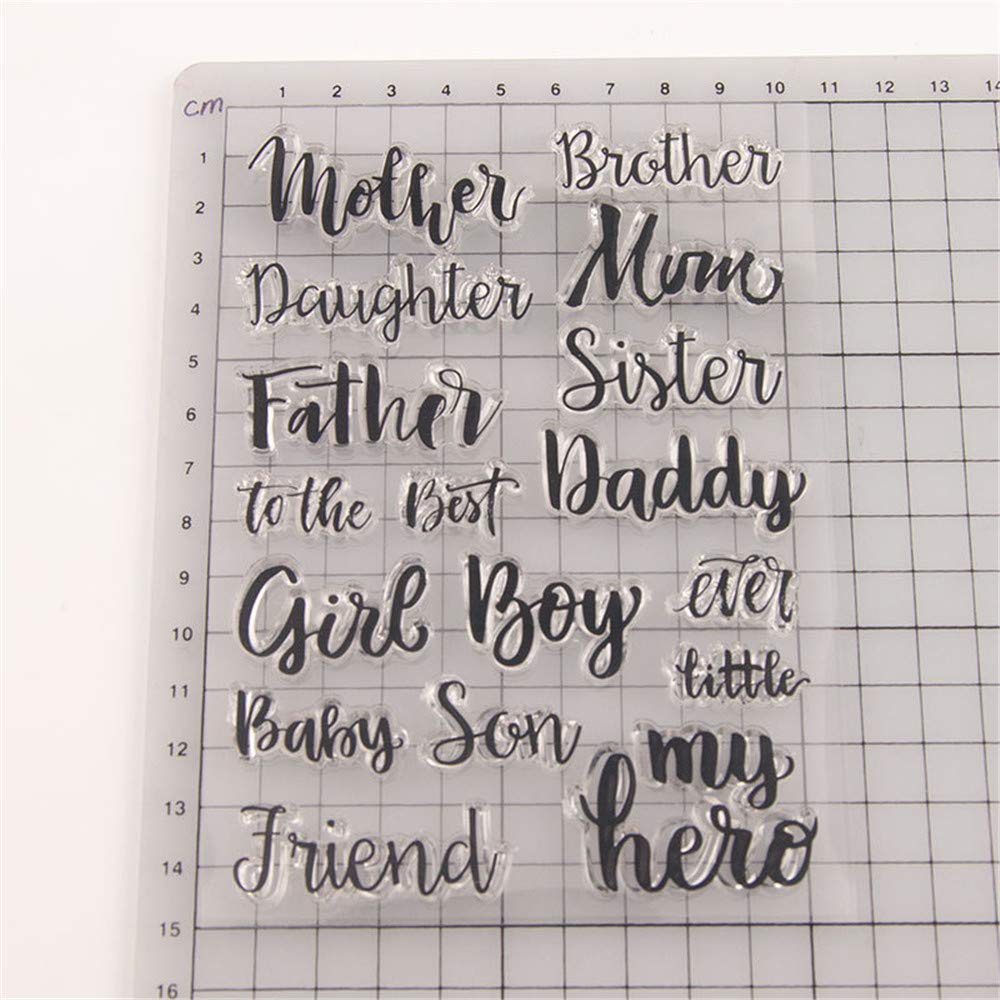 1 2 3 4 5 6 7 8 9 10 11 12 13 14
cm
1
2
3
4
5
6
7
8
9
10
11
12
13
14
15
16
Mother
Daughter
Father
to the Best
Girl Boy
Baby Son
Friend
Brother
Mom
Sister
Daddy
ever
little
my
hero